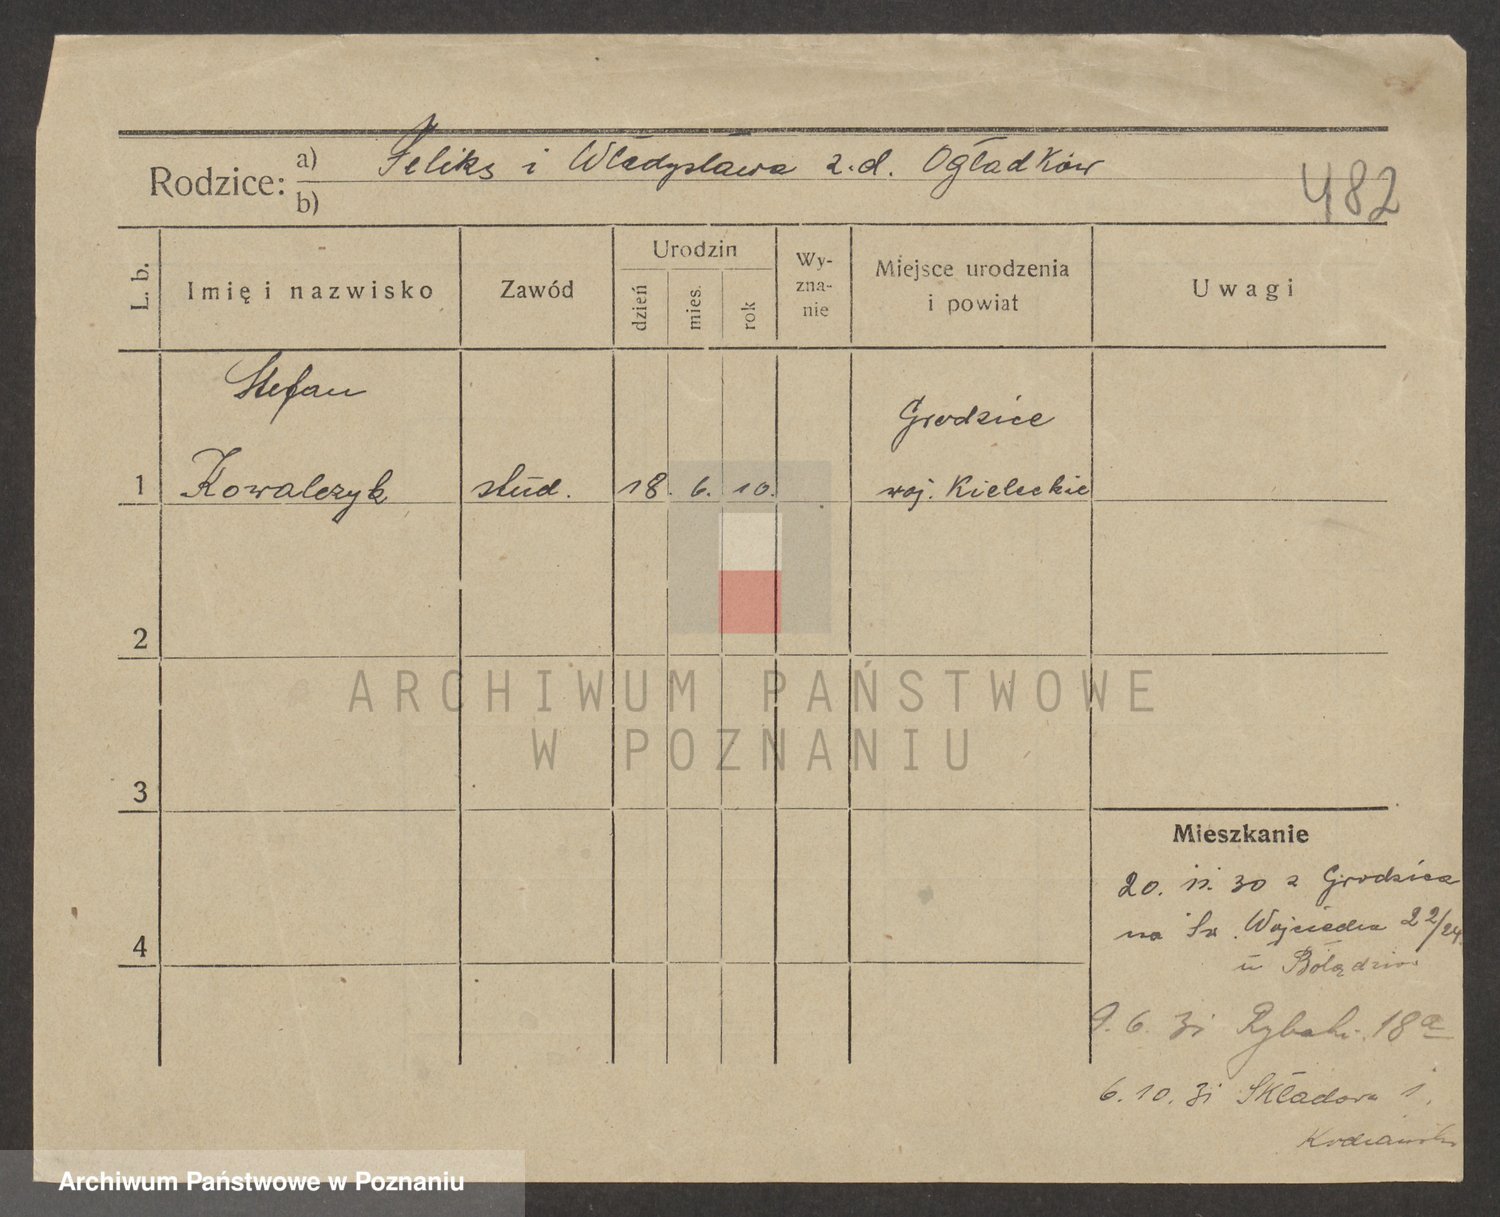 Rodzice: a) Feliks i Władysława z.d. Ogładków
b)
482
L. b. Imię i nazwisko Zawód Urodzin dzień mies. rok Wy-zna-nie Miejsce urodzenia i powiat Uwagi
Stefan
Grodzice
1 Kowalczyk stud. 18. 6. 10. woj. Kieleckie
2
ARCHIWUM PAŃSTWOWE
W POZNANIU
3
Mieszkanie
20. 11. 30 z Grodzica
4 na Św. Wojciecha 22/24
u
9. 6. 31 Rybaki 18a
6. 10. 31 Składowa 1.
Archiwum Państwowe w Poznaniu